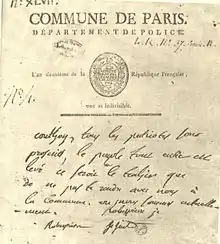 n° XLVII.
COMMUNE DE PARIS.
DÉPARTEMENT DE POLICE
L'an deuxième de la République Française,
une et indivisible.
couthon, tous les patriotes sont
proscrits, le peuple tout entier est
levé ce seroit le trahir que
de ne pas te rendre avec nous à
la commune, où nous sommes actuelle-
ment. Robespierre j.e
Robespierre St Just